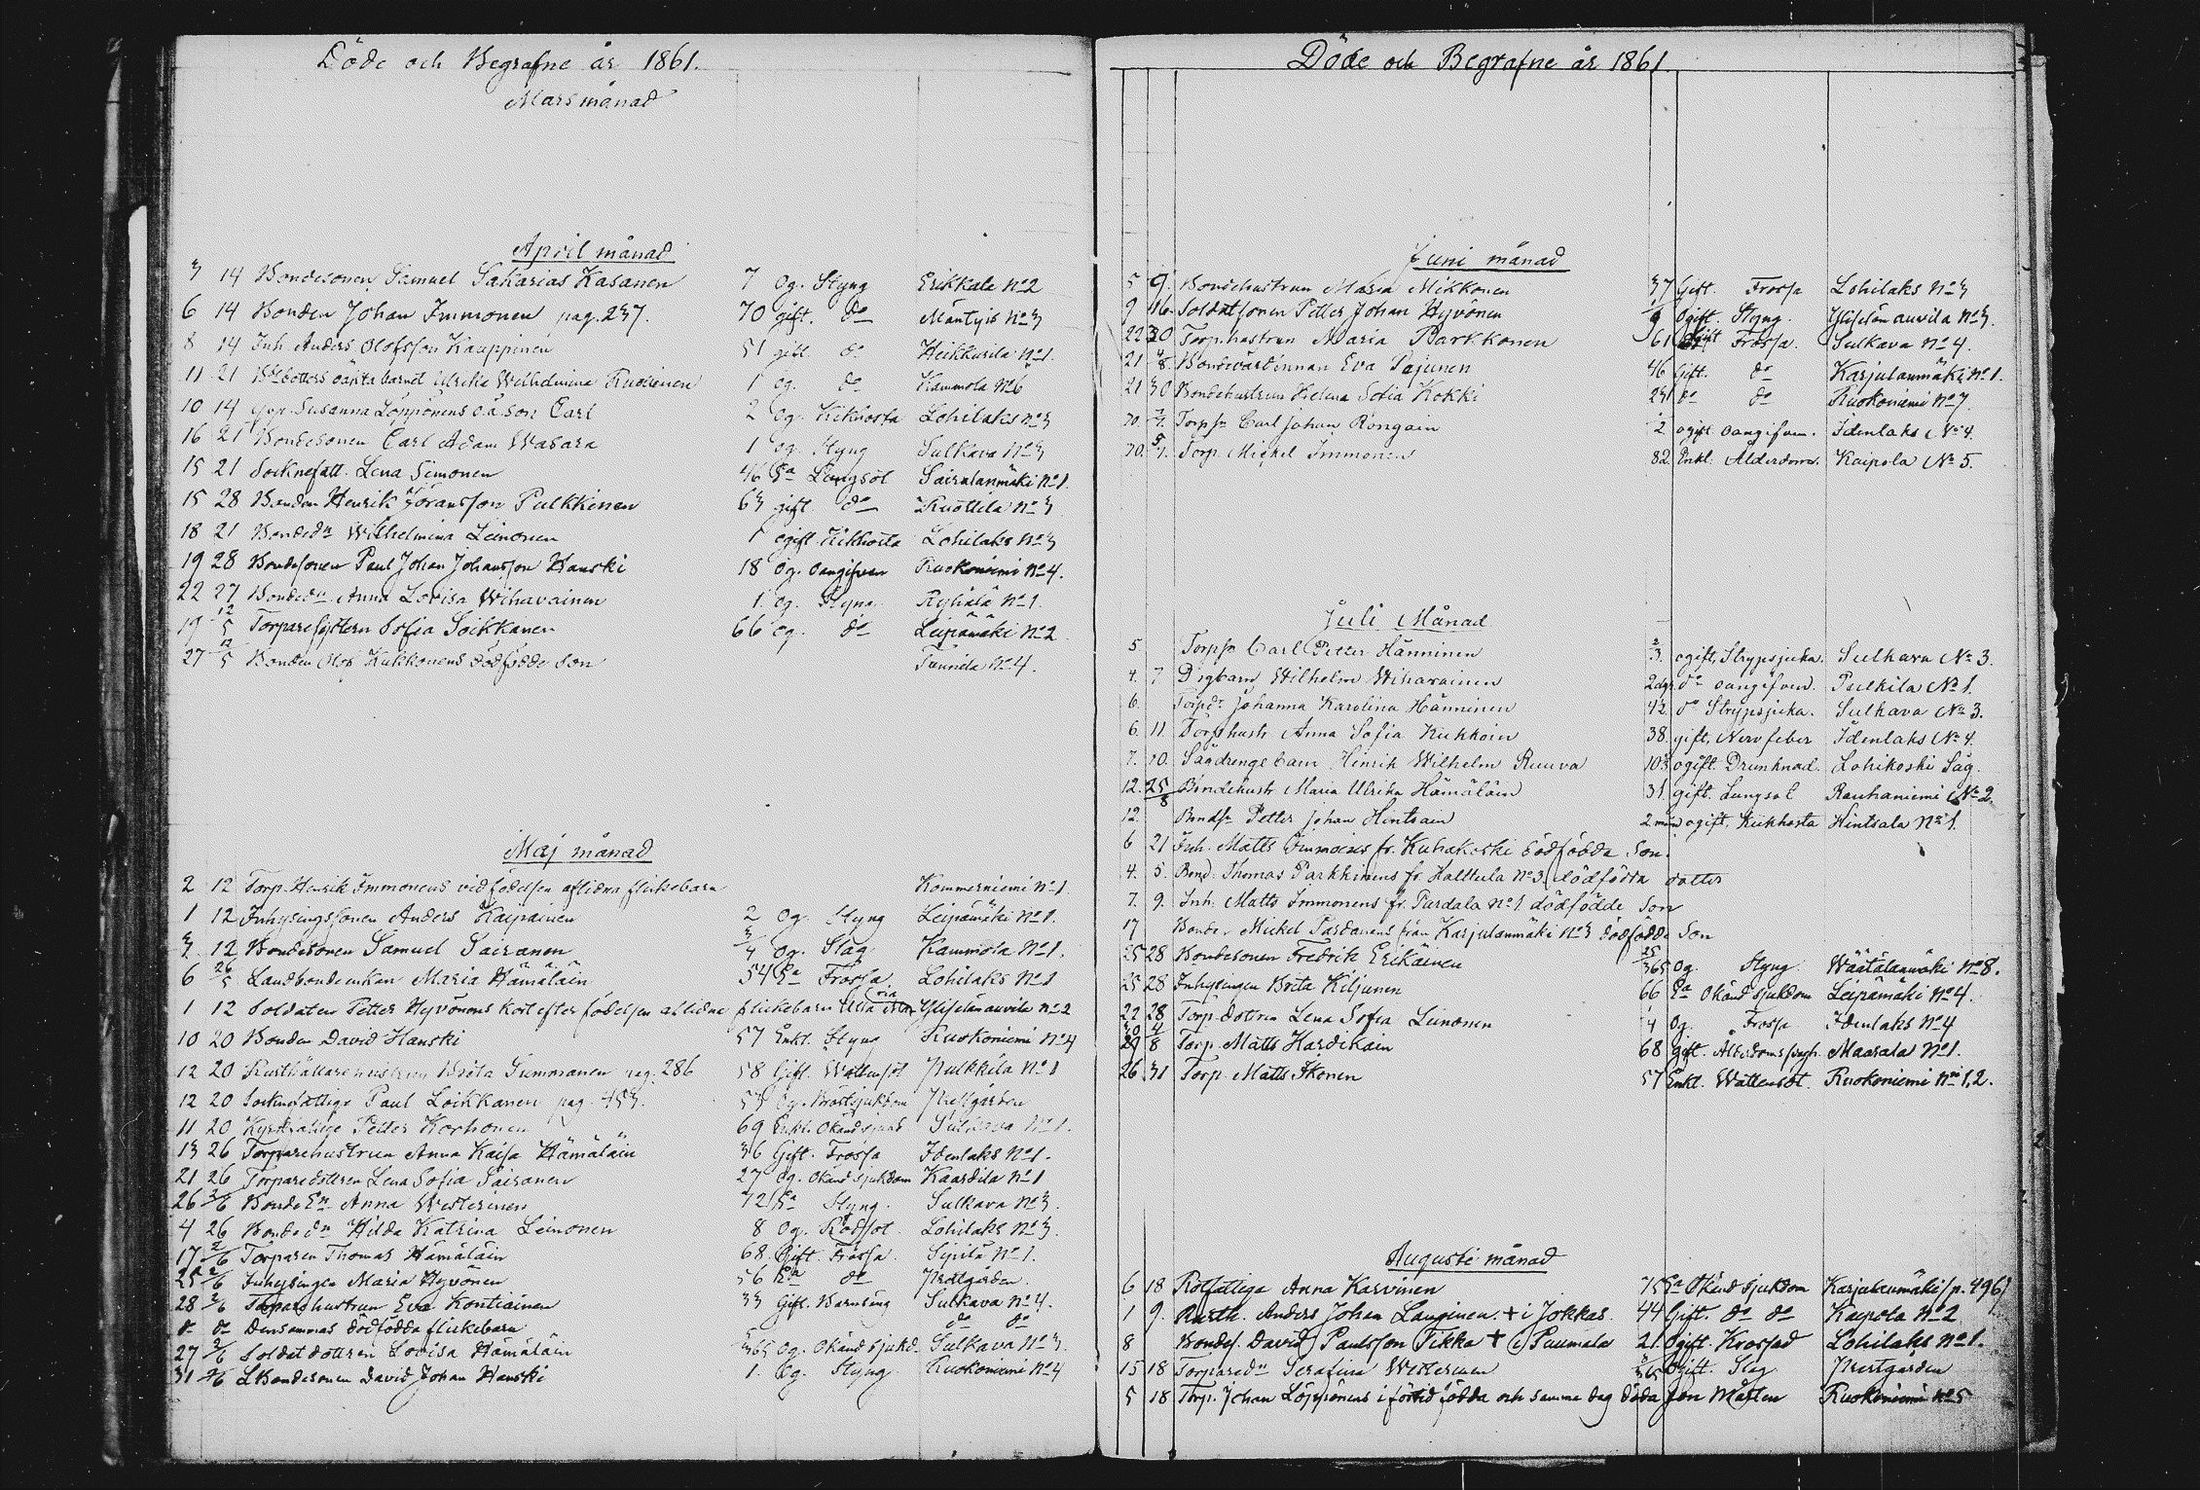 Döde och Begrafne år 1861.
Marsmånad
April månad
3 14 Bondesonen Samuel Sakarias Kasanen 7 og. Styng Erikkala No 2
6 14 Bonden Johan Immonen pag. 237. 70 gift. do Mäntyis No 3
8 14 Inh. Anders Olofsson Kauppinen 51 gift do Heikkurila No 1.
11 21 oäkta barnet Ulrika Wilhelmina 1 og. do Kammola No 6
10 14 Susanna Löppönens oä. son Carl 2 og. Kikhosta Lohilaks No 3
16 21 Bondesonen Carl Adam Wasara 1 og. Styng Sulkava No 3
15 21 Socknefatt. Lena Simonen 46 Ea Lungsot Sairalanmäki No 1.
15 28 Bonden Henrik Göransson Pulkkinen 63 gift. do Ruottila No 3
18 21 Bondedn Wilhelmina Leinonen 1 ogift Kikhosta Lohilaks No 3
19 28 Bondesonen Paul Johan Johansson Hanski 18 og. oangifven Ruokoniemi No 4.
22 27 Bondedn Anna Lovisa Wihavainen 1. og. Styng Ryhälä No 1.
19 12/5 Torparesystern Sofia Soikkanen 66 og. do Leipämäki No 2
27 12/5 Bonden Olof Kukkonens dödfödde son Tunnila No 4.
Maj månad
2 12 Torp. Henrik Immonens vid födelsen aflidna flickebarn Kommerniemi No 1.
1 12 Inhysingssonen Anders Kaipainen 2 og. Styng Leipämäki No 1.
3 12 Bondesonen Samuel Sairanen 3/4 og. Slag Kammola No 1.
6 26/5 Landbondeenkan Maria Hämäläin 54 Ea Frossa Lohilaks No 1
1 12 Soldaten Petter Hyvönens kort efter födelsen aflidne flickebarn Ylisenauvila No 2
10 20 Bonden David Hanski 57 Enkl. Styng Ruokoniemi No 4
12 20 Rusthållarehustrun Brita Tummanen pag. 286 58 Gift. Wattensot Pulkkila No 1
12 20 Sockenfattige Paul Loikkanen pag. 453. 53 Og. Bröstsjukdom Prestgården
11 20 Petter Korhonen 69 Enkl. Okänd sjukd Sulkava No 1.
13 26 Torparehustrun Anna Kaisa Hämäläin 36 Gift. Frossa Idenlaks No 1.
21 26 Torparedottren Lena Sofia Sairanen 27 Og. Okänd sjukdom Kaartila No 1
26 2/6 Bonde En Anna Westerinen 72 Ea Styng. Sulkava No 3.
4 26 Bondedn Hilda Katrina Leinonen 8 Og. Rödsot. Lohilaks No 3.
17 2/6 Torparen Thomas Hämäläin 68 Gift. Frossa Sipilä No 1.
25 2/6 Inhysingen Maria Hyvönen 56 Ea do Prestgården.
28 2/6 Torparehustrun Eva Kontiainen 33 Gift. Barnsäng Sulkava No 4.
do do Densammas dödfödda flickebarn do do
27 2/6 Soldatdottren Lovisa Hämäläin 3/365 Og. Okänd sjukd. Sulkava No 3.
31 2/6 LBondesonen David Johan Hanski 1. Og. Styng Ruokoniemi No 4
Döde och Begrafne år 1861.
Juni månad
5 9. Bondehustrun Maria Mikkonen 37 Gift. Frossa Lohilaks No 3
9 16. Soldatsonen Petter Johan Hyvönen Ogift. Styng. Ylisenauvila No 3.
22 30 Torp.hustrun Maria Parkkonen 61 Gift Frossa. Sulkava No 4.
21 Bondevärdinnan Eva Pajunen 46 Gift. do Karjulanmäki No 1.
21 30 Bondehustrun Helena Sofia Kokki 23 do do Ruokoniemi No 7.
Torpsn Carl Johan Rongain 2 ogift oangifven. Idenlaks No 4.
Torp. Mickel Immonen 82. Enkl. Ålderdom. Kaipola No 5.
Juli Månad
5 Torpsn Carl Petter Hänninen 2/3. ogift, Strypsjuka. Sulkava No 3.
4. 7 Digbarn Wilhelm Wihavainen 2 dgr do oangifven. Pulkila No 1.
6. Torpdr Johanna Karolina Hänninen do Strypsjuka. Sulkava No 3.
6. 11. Torphustr Anna Sofia Kukkoin 38. gift, Nervfeber Idenlaks No 4.
7. 10. Sågdrengs barn Hinrik Wilhelm Ruuva ogift. Drunknad. Lohikoski Såg.
12. 25/8 Bondehustr Maria Ulrika Hämäläin 31. gift. Lungsot Rauhaniemi No 2.
12. Bondsn Petter Johan Hintsain 2 mån ogift, Kikhosta Hintsala No 1.
6 21 Inh. Matts Immoises fr. Kuhakoski dödfödda son.
4. 5. Bond. Thomas Parkkinens fr. Halttula No 3. dödfödta dotter
7. 9. Inh. Matts Immonens fr. Partala No 1. dödfödde son
17 Bonde. Mickel Tardanens från Karjulanmäki No 3 dödfödde son
25 28 Bondesonen Fredrik Erikäinen 25/365 Og. Styng. Wäätälänmäki No 8.
25 28 Inhysingen Brita Kiljunen 66 Ea Okänd sjukdom Leipämäki No 4.
22 28 Torp. dottren Lena Sofia Leinonen 4 Og. Frossa Idenlaks No 4
29 4/8 Torp. Matts Hardikain 68 Gift. Ålderdomssvagh. Maarala No 1.
26 31 Torp. Matts Ikonen 57 Enkl. Wattensot. Ruokoniemi No 1, 2.
Augusti månad
6 18 Rotfattiga Anna Karvinen 75 Ea Okänd sjukdom Karjulanmäki (p. 496)
1 9. Rusth. Anders Johan Lauginen. + i Jokkas. 44 Gift. do do Kaipola No 2
8 Bondes. David Paulsson Tikka + i Puumala 21. Ogift. Krossad Lohilaks No 1.
15 18 Torparedn Serafina Westerinen Ogift. Slag Prestgården
5 18 Torp. Johan Löppönens i förtid födda och samma dag döda son Mårten Ruokoniemi No 5